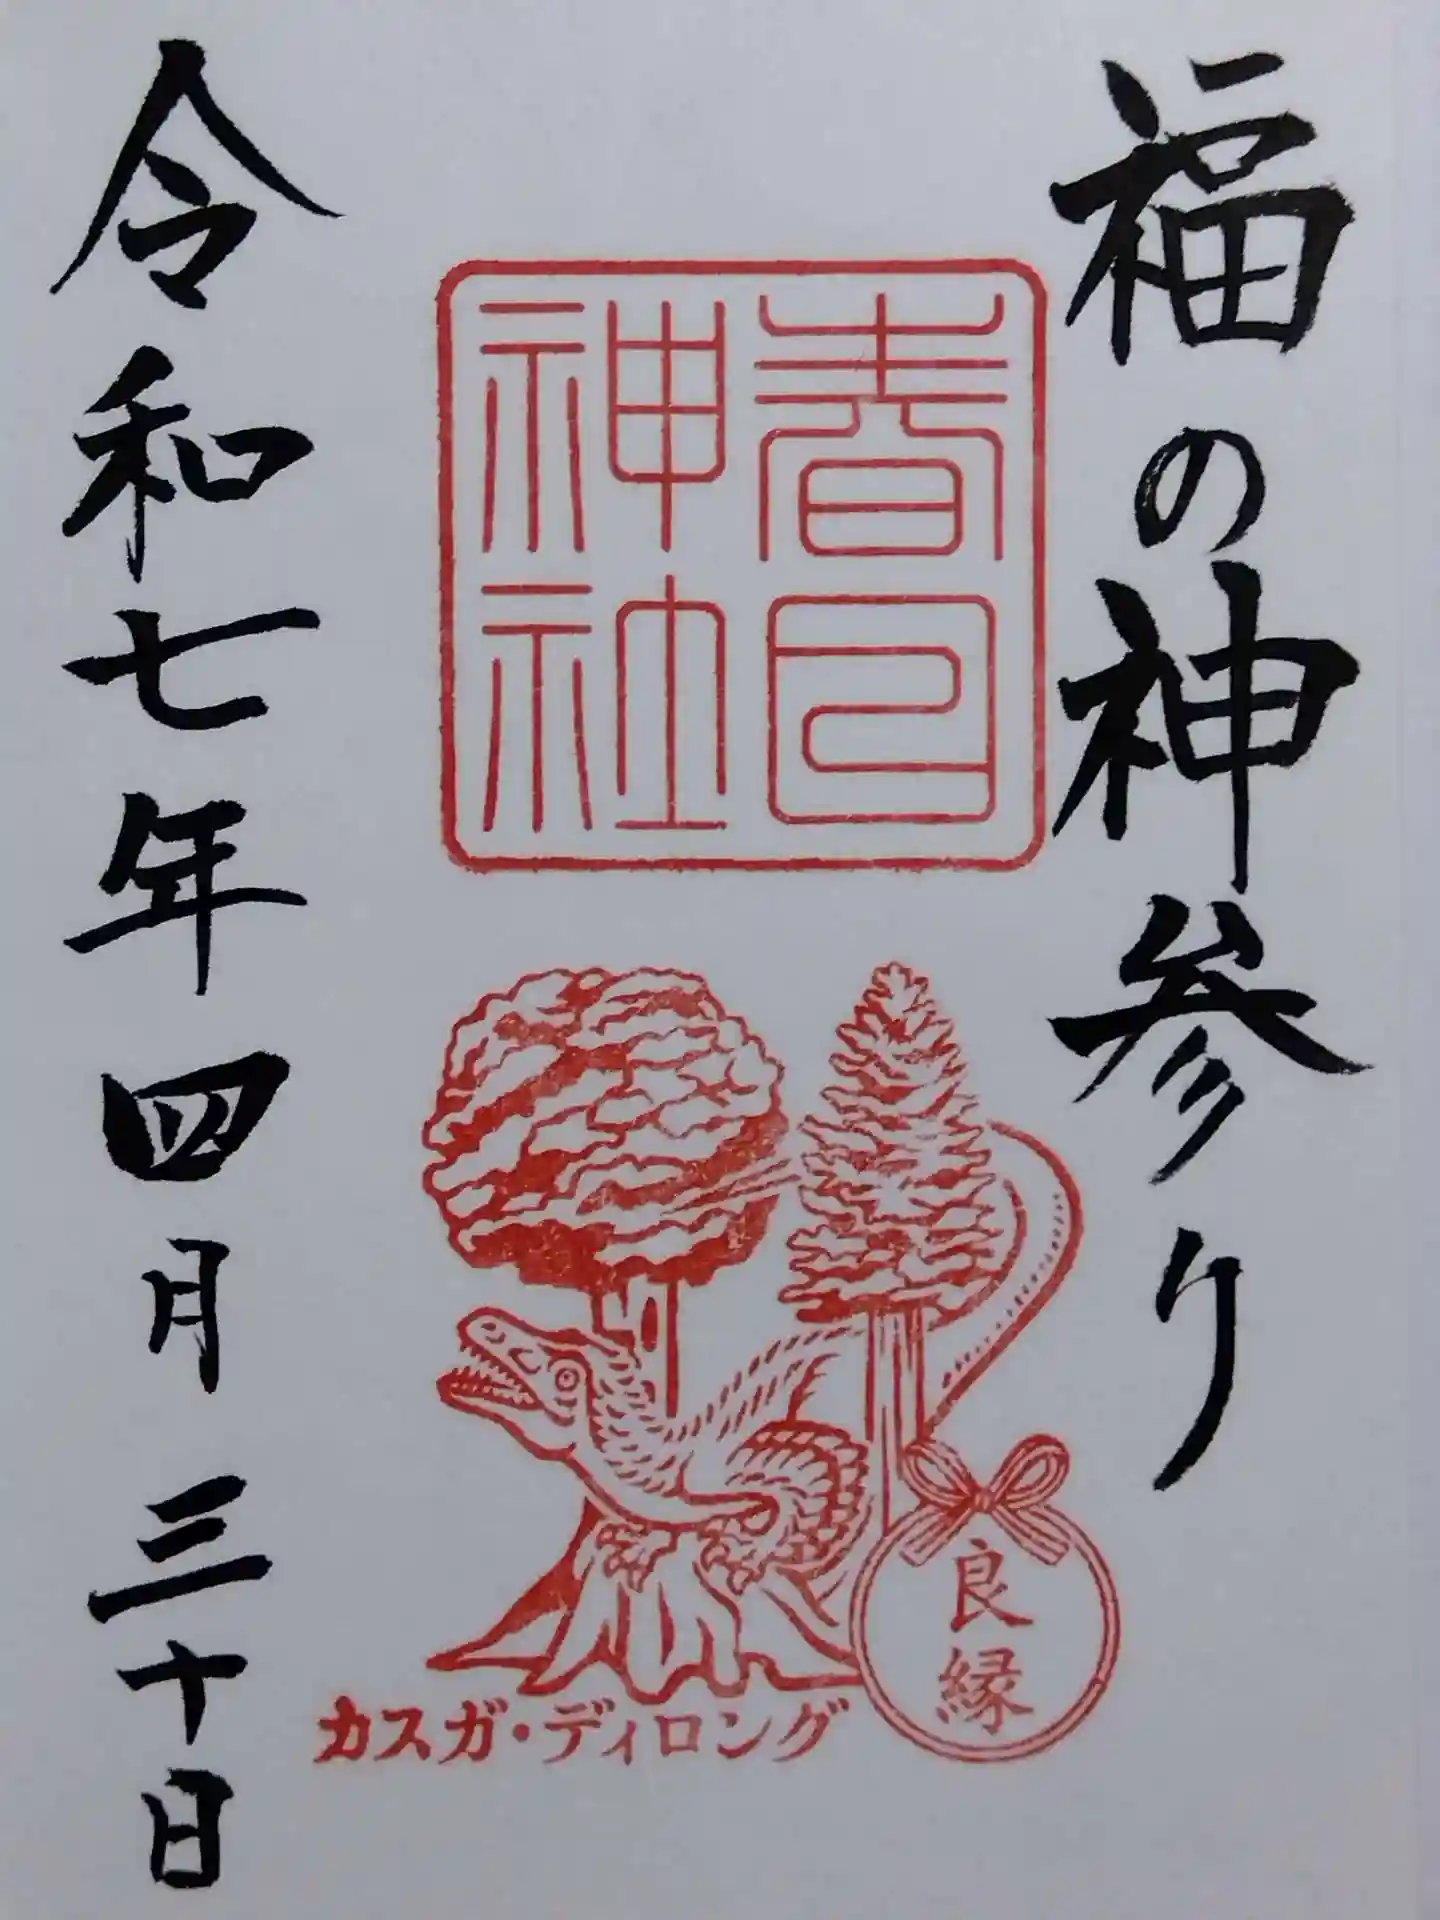 福の神参り
春日
神社
良縁
カスガ・ディロング
令和七年四月三十日